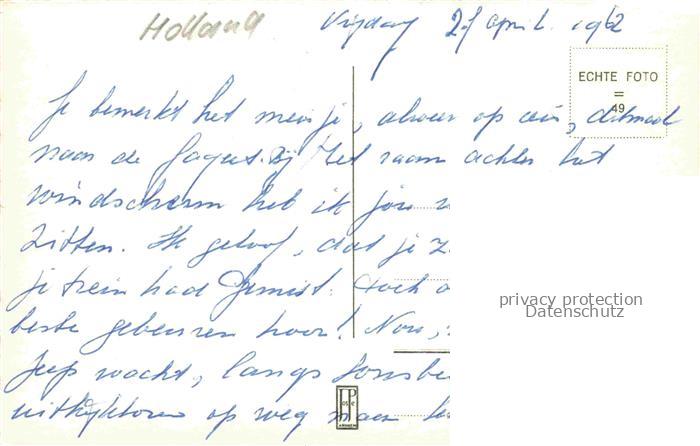 Holland
Vrijdag 27 april. 1962
ECHTE FOTO
=
49
Je bemerkt het meisje, alweer op een, ditmaal
naar de Bij het raam achter het
windscherm heb ik jou
zitten. Ik geloof, dat je z
je trein had gemist. toch
beste gebeuren hoor! Nou,
Jeep wacht, langs Sonsbe
uitkijktoren op weg naar
JP
ARNHEM
privacy protection
Datenschutz